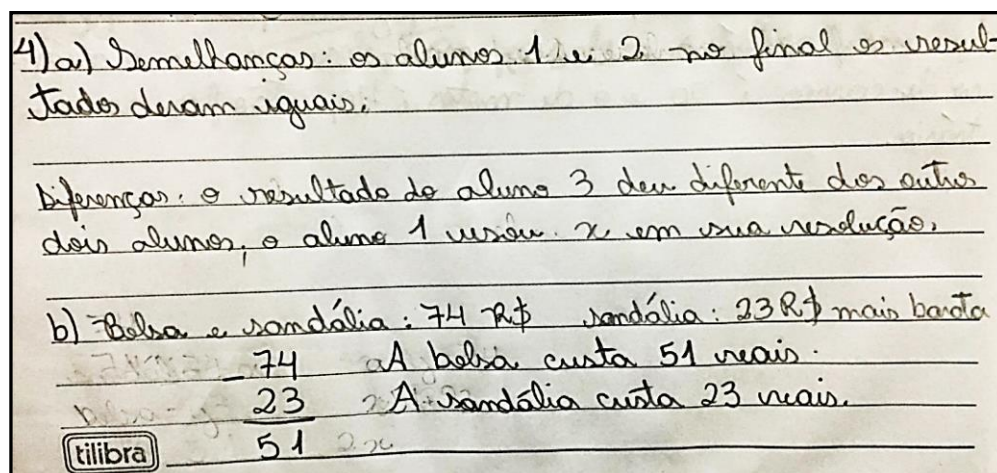 4)a) Semelhanças: os alunos 1 e 2 no final os resul-
tados deram iguais.
Diferenças: o resultado do aluno 3 deu diferente dos outros
dois alunos, o aluno 1 usou x em sua resolução.
b) Bolsa e sandália: 74 R$ sandália: 23 R$ mais barata
- 74 A bolsa custa 51 reais.
23 A sandália custa 23 reais.
51
tilibra